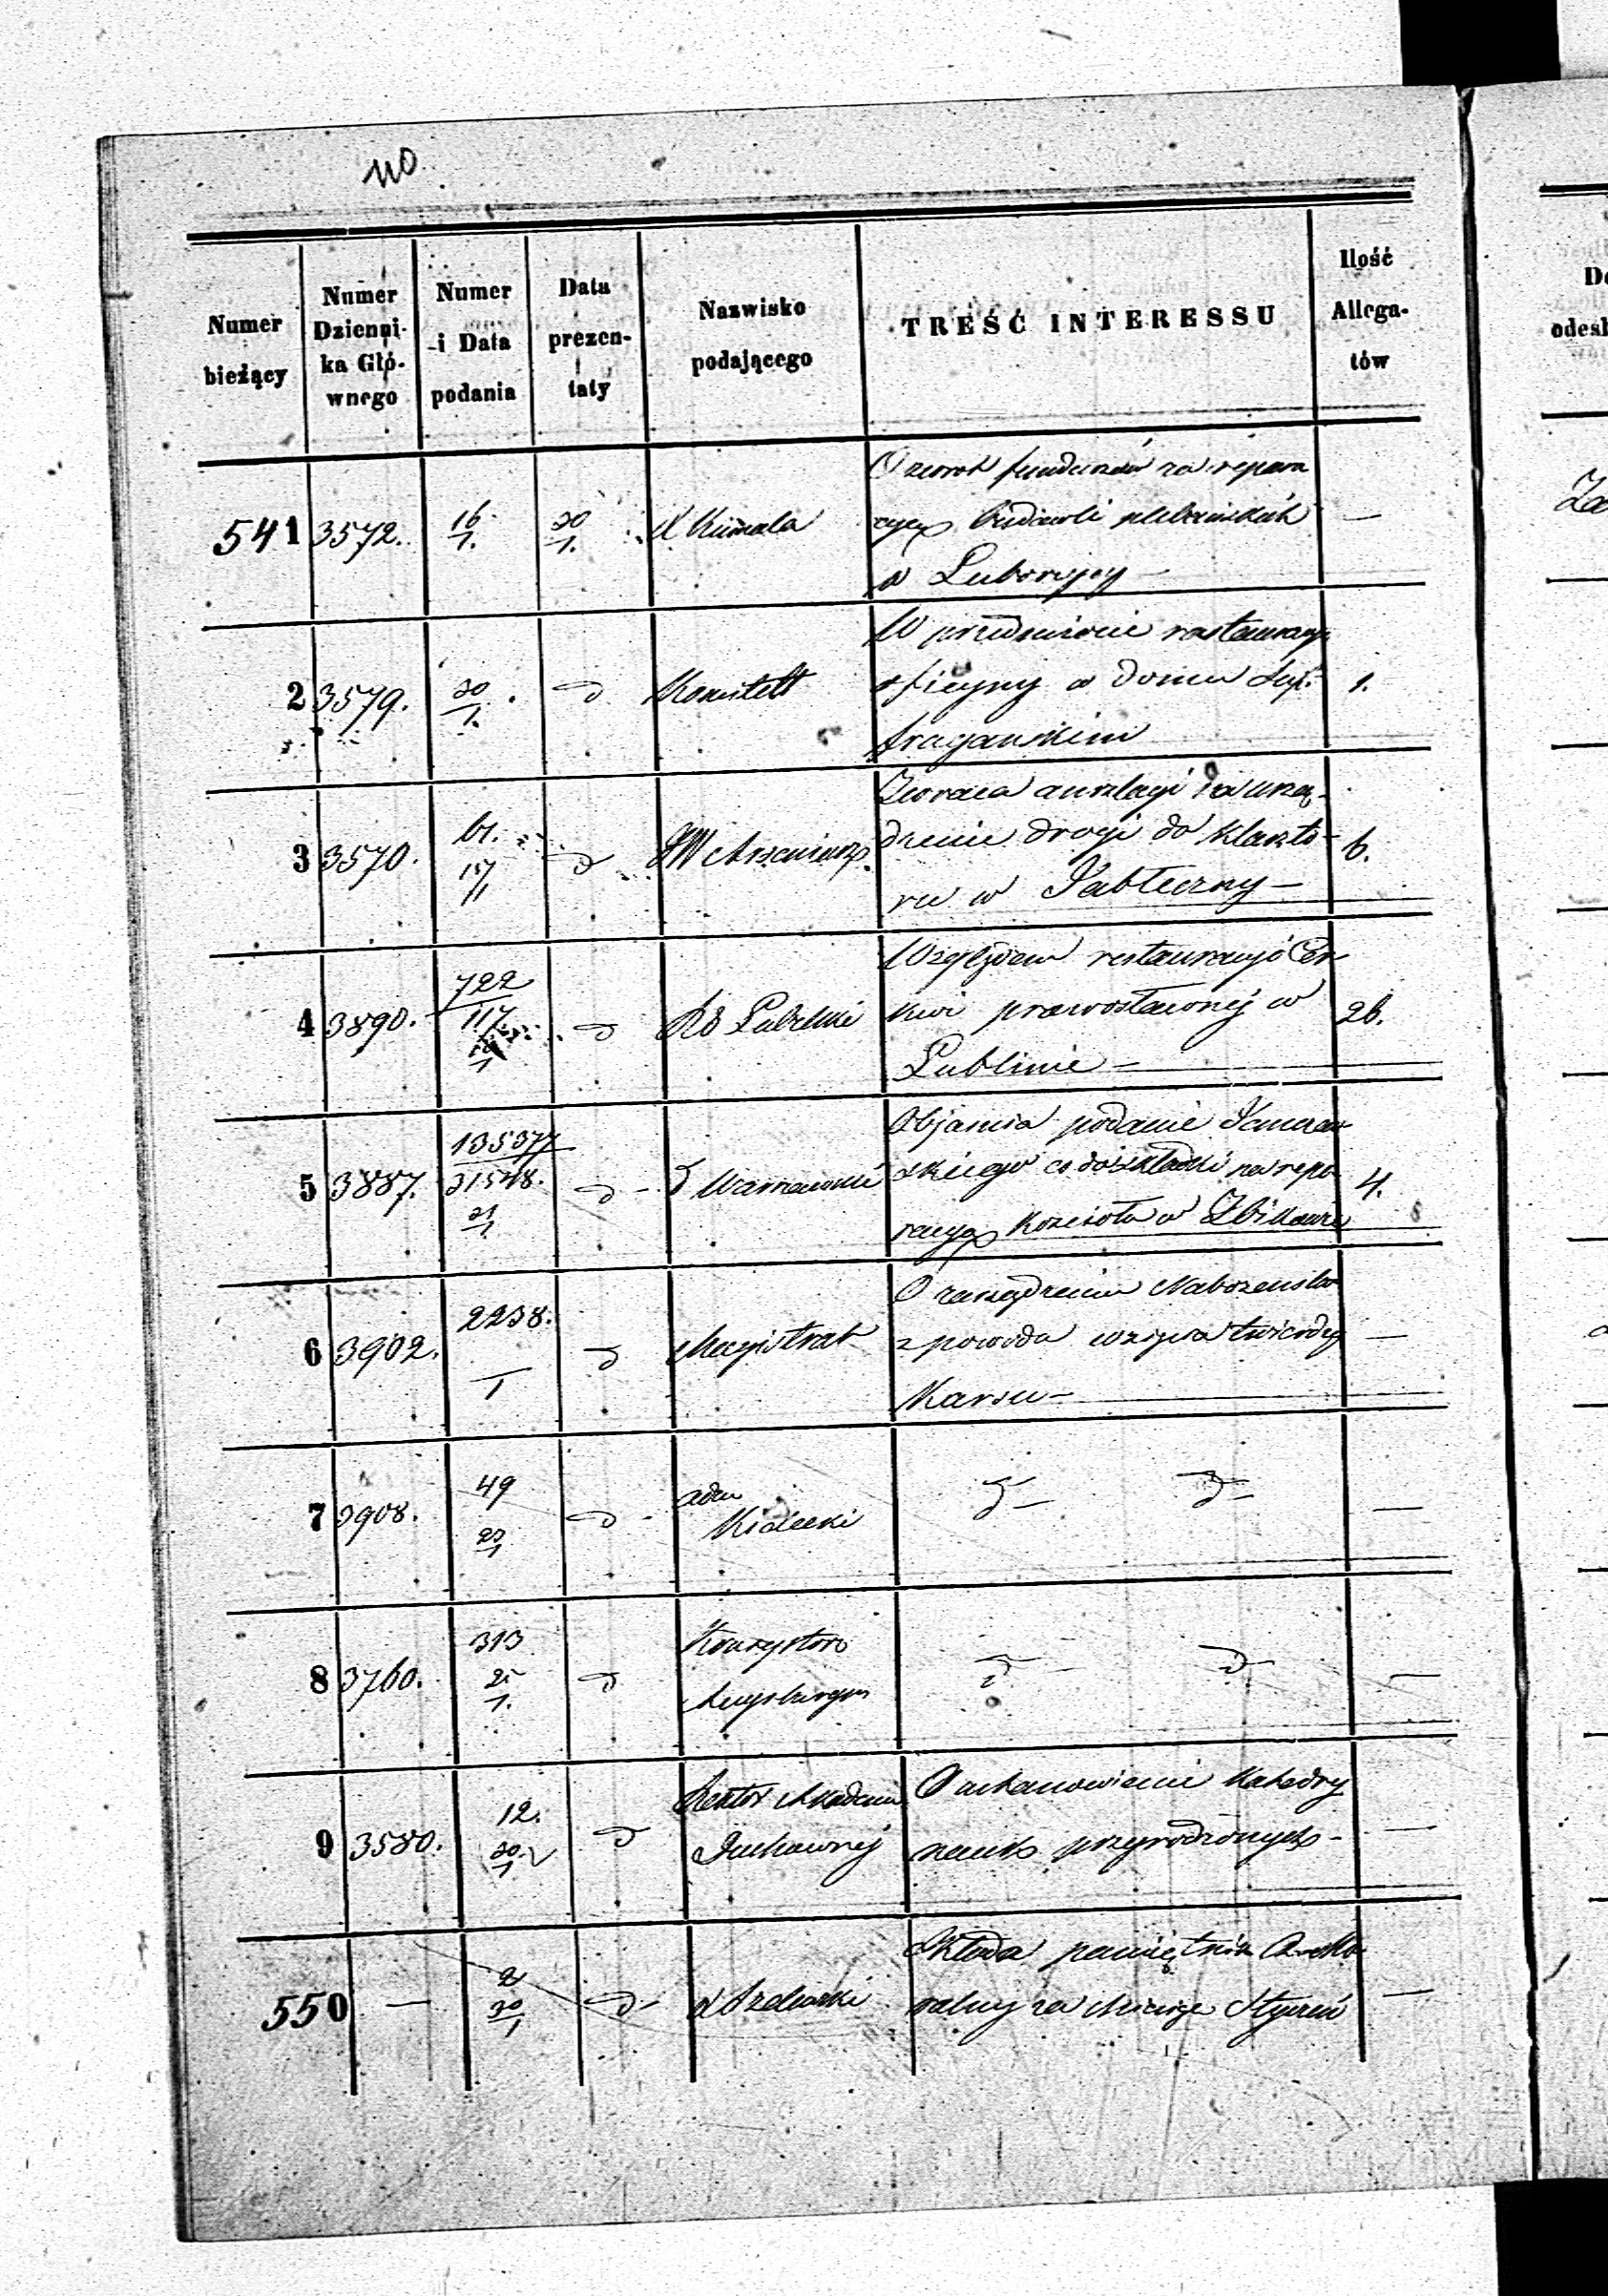 110
Numer bieżący
Numer Dzienni-ka Głó-wnego
Numer i Data podania
Data prezen-taty
Nazwisko podającego
TREŚĆ INTERESSU
Ilość Allega-tów
541 3572. 16/1. 20/1. X —
O zwrot funduszów za repara
cyę budowli plebańskich
w Luborzycy —
2 3579. 20/1. d Komitett 1.
W przedmiocie restauracyi
oficyny w Domu Suf-
fragańskim
3 3570. 61. 15/1 d JW Arseniusz 6.
Zwraca anszlagi na urzą-
dzenie drogi do Klaszto-
ru w Jabłeczny —
4 3890. 722 117 d RG Lubelski 26.
Względem restauracyi Cer
kwi prawosławnej w
Lublinie —
5 3887. 135377 31548. 21/1 d - d Warszawski 4.
Objaśnia podanie
skiego co do składki na repa-
racyę Kościoła w Zbikowie
6 3902. 2238. /1 d Magistrat —
O zarządzeniu Nabożeństw
z powodu wzięcia twierdzy
Karsu —
7 3908. 49 23/1 d - adm Kielecki d — d — —
8 3760. 313 21/1. d Konsystorz Augsburgsk d — d — —
9 3580. 12. 20/1 d Rektor Akademii Duchownej —
O ustanowienie Katedry
nauk przyrodzonych -
550 — 2 20/1 d - X —
Składa pamiętnik
ralny za Miesiąc Styczeń
De
odesł
Za